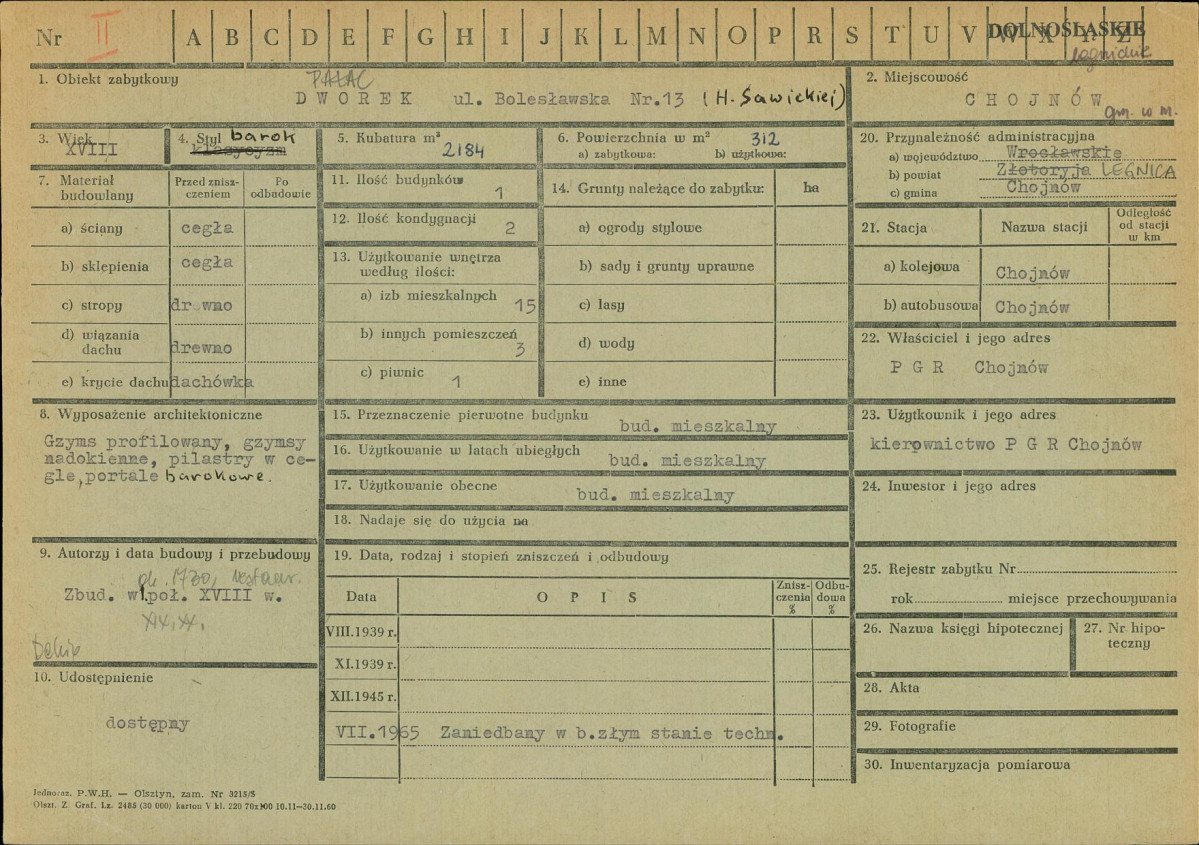 Nr II A B C D E F G H I J K L M N O P R S T U V W X Y Z DOLNOŚLĄSKIE
legnickie
1. Obiekt zabytkowy
PAŁAC
DWOREK ul. Bolesławska Nr.13 (H. Sawickiej)
2. Miejscowość
CHOJNÓW
gm. w m.
3. Wiek
XVIII
4. Styl barok
klasycyzm
5. Kubatura m³
2184
6. Powierzchnia w m² 312
a) zabytkowa: b) użytkowa:
7. Materiał budowlany
Przed zniszczeniem
Po odbudowie
a) ściany cegła
b) sklepienia cegła
c) stropy drewno
d) wiązania dachu drewno
e) krycie dachu dachówka
11. Ilość budynków 1
12. Ilość kondygnacji 2
13. Użytkowanie wnętrza
według ilości:
a) izb mieszkalnych 15
b) innych pomieszczeń 3
c) piwnic 1
14. Grunty należące do zabytku: ha
a) ogrody stylowe
b) sady i grunty uprawne
c) lasy
d) wody
e) inne
20. Przynależność administracyjna
a) województwo Wrocławskie
b) powiat Złotoryja LEGNICA
c) gmina Chojnów
21. Stacja Nazwa stacji
Odległość
od stacji
w km
a) kolejowa Chojnów
b) autobusowa Chojnów
22. Właściciel i jego adres
P G R Chojnów
8. Wyposażenie architektoniczne
Gzyms profilowany, gzymsy
nadokienne, pilastry w ce-
gle, portale barokowe.
15. Przeznaczenie pierwotne budynku
bud. mieszkalny
16. Użytkowanie w latach ubiegłych
bud. mieszkalny
17. Użytkowanie obecne
bud. mieszkalny
18. Nadaje się do użycia na
23. Użytkownik i jego adres
kierownictwo P G R Chojnów
24. Inwestor i jego adres
9. Autorzy i data budowy i przebudowy
ok. 1730, restaur.
Zbud. w 1.poł. XVIII w.
XIX, XX.
19. Data, rodzaj i stopień zniszczeń i odbudowy
Data O P I S
Znisz-
czenia
%
Odbu-
dowa
%
VIII.1939 r.
XI.1939 r.
XII.1945 r.
VII.1965 Zaniedbany w b.złym stanie techn.
25. Rejestr zabytku Nr
rok miejsce przechowywania
26. Nazwa księgi hipotecznej
27. Nr hipo-
teczny
10. Udostępnienie
dostępny
28. Akta
29. Fotografie
30. Inwentaryzacja pomiarowa
Jednoraz. P.W.H. — Olsztyn, zam. Nr 3215/S
Olszt. Z. Graf. Lz. 2485 (30 000) karton V kl. 220 70x100 10.11—30.11.60